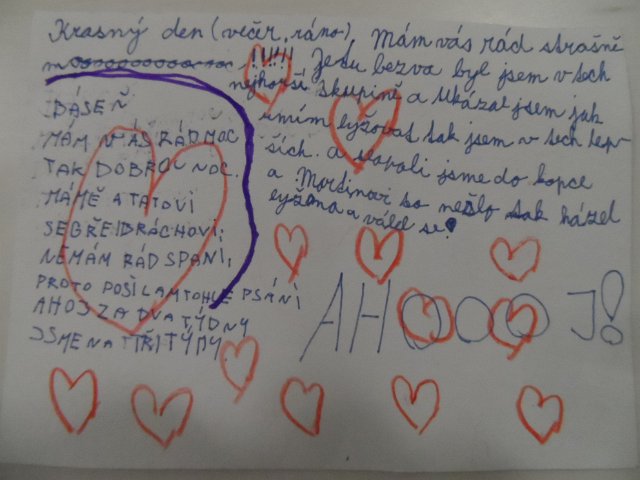 Krasný den (večer, ráno). Mám vás rád strašně
moooooooooooc !!!!! Je tu bezva byl jsem v těch
nejhorší skupině a ukázal jsem jak
umím lyžovat tak jsem v těch lep-
ších. a šlapali jsme do kopce
a Martinovi so nešlo tak házel
lyžema a vále se!
BÁSEŇ
MÁM VÁS RÁD MOC
TAK DOBROU NOC.
MÁMĚ A TATOVI
SEBŘE BRÁCHOVI;
NĚMÁM RÁD SPANÍ;
PROTO POŠÍLAM TOHLE PSÁNÍ
AHOJ ZA DVA TÝDNY
JSME NA TŘI TÝMY.
AHOOOOJ!